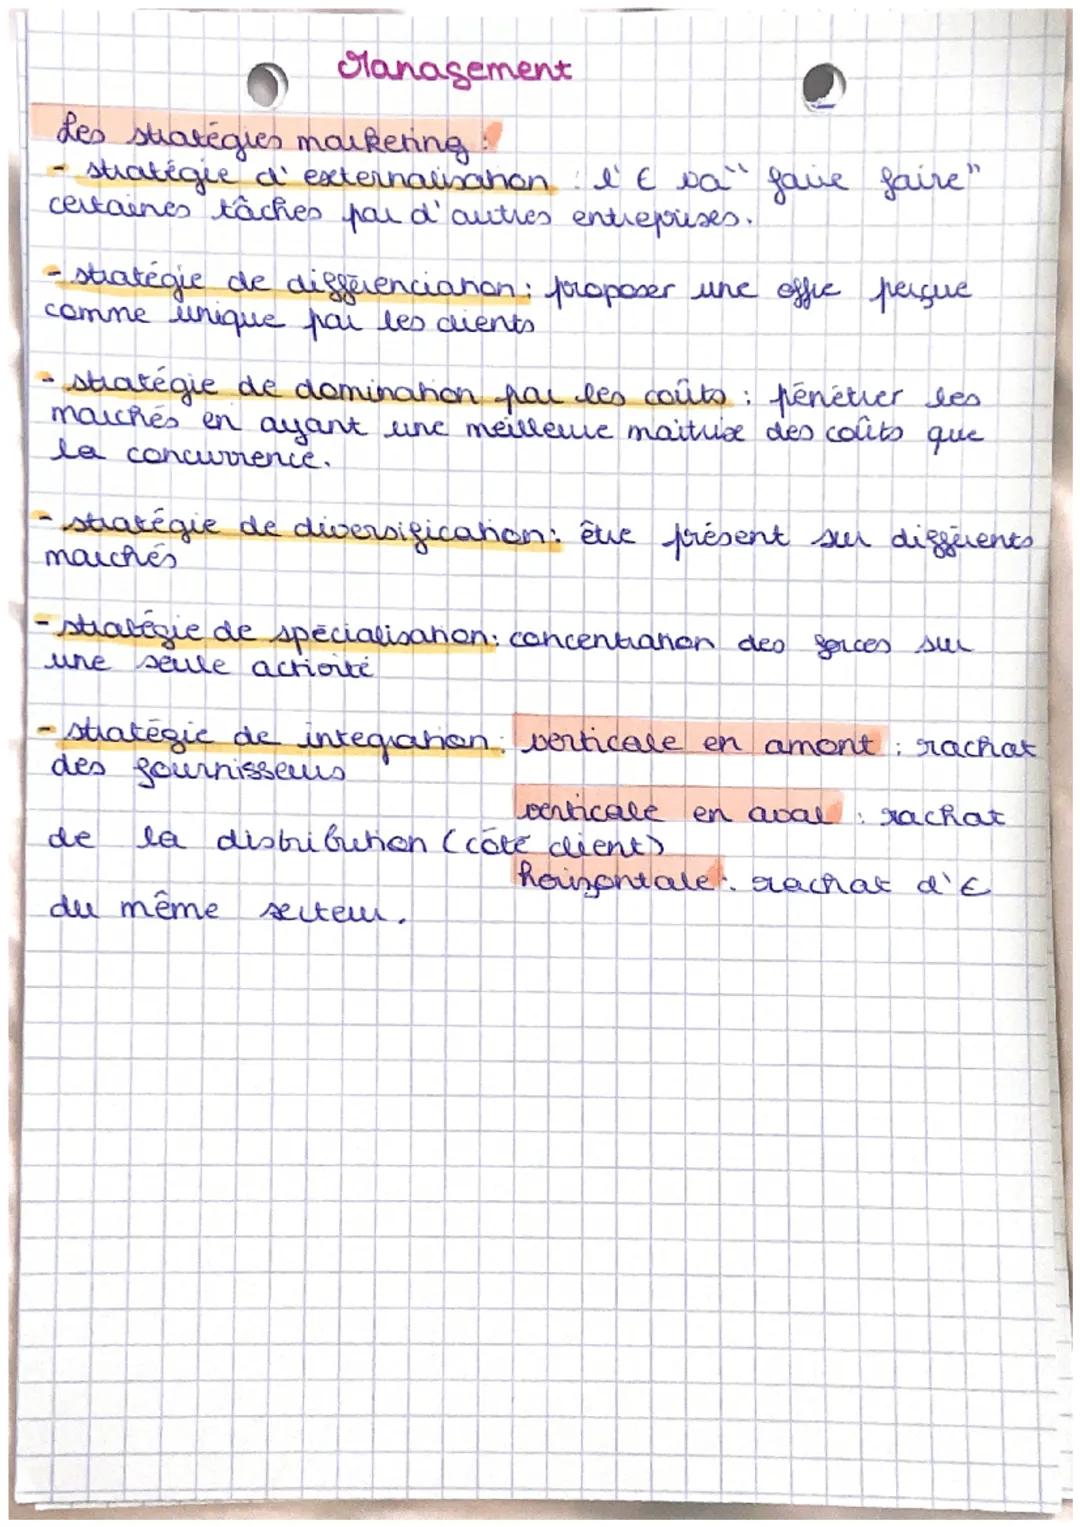 Management
Les stratégies marketing :
- stratégie d'externalisation : l'€ va "faire faire"
certaines tâches par d'autres entreprises.
- stratégie de différenciation : proposer une offre perçue
comme unique par les clients
- stratégie de domination par les coûts : pénétrer les
marchés en ayant une meilleure maitrise des coûts que
la concurrence.
- stratégie de diversification : être présent sur différents
marchés
- stratégie de spécialisation : concentration des forces sur
une seule activité
- stratégie de integration : verticale en amont : rachat
des fournisseurs
verticale en aval : rachat
de la distribution (côté client)
horizontale : rachat d'€
du même secteur.